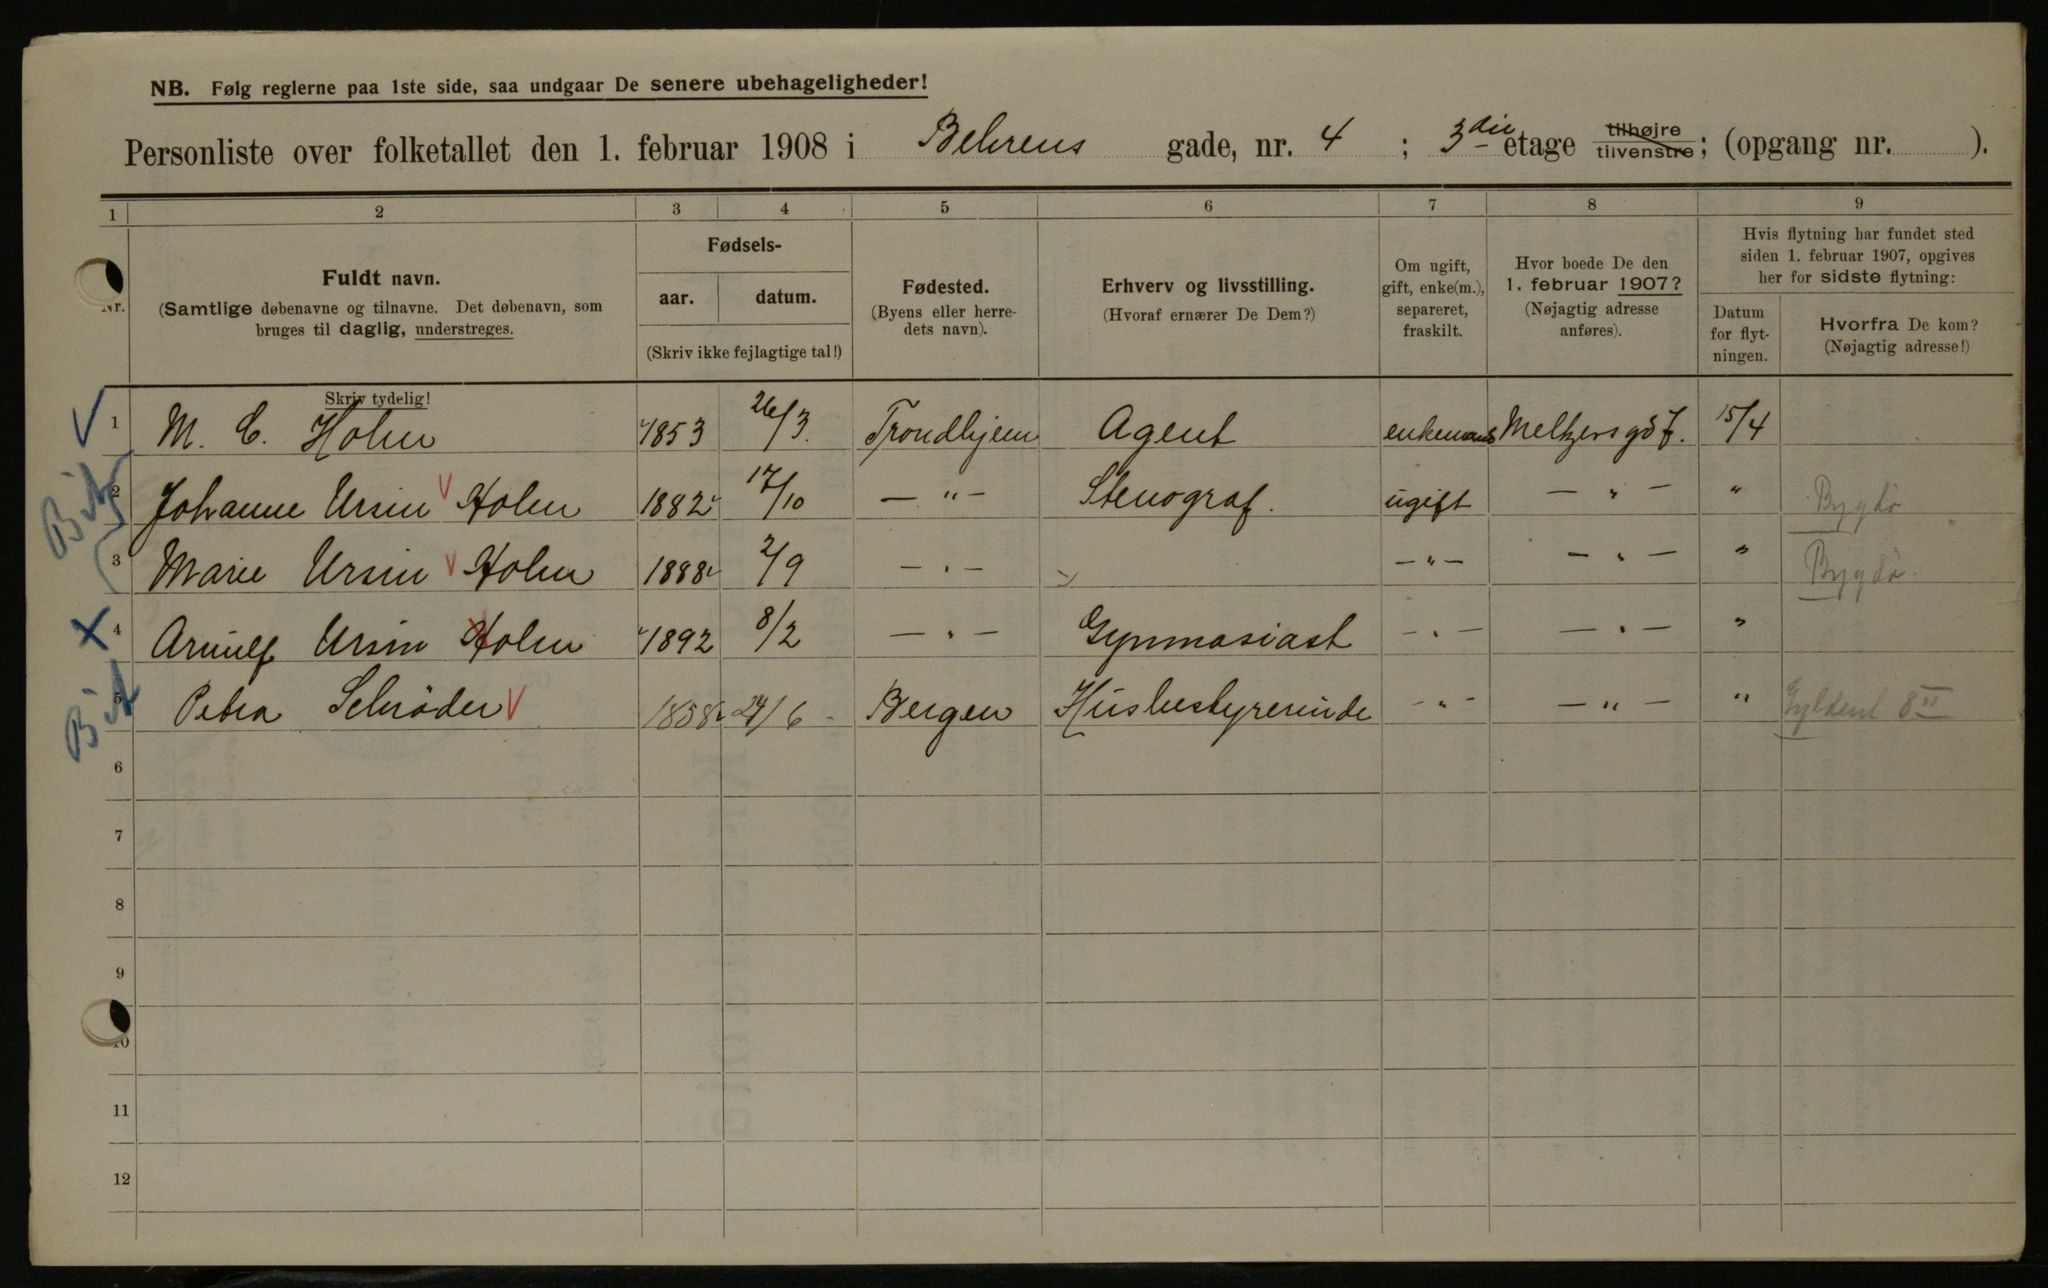 NB. Følg reglerne paa 1ste side, saa undgaar De senere ubehageligheder!
Personliste over folketallet den 1. februar 1908 i Behrens gade, nr. 4 ; 3die etage tilhøjre tilvenstre; (opgang nr. ).
1 2 3 4 5 6 7 8 9
Nr.
Fuldt navn.
(Samtlige døbenavne og tilnavne. Det døbenavn, som
bruges til daglig, understreges.
Fødsels-
aar. datum.
(Skriv ikke fejlagtige tal!)
Fødested.
(Byens eller herre-
dets navn).
Erhverv og livsstilling.
(Hvoraf ernærer De Dem?)
Om ugift,
gift, enke(m.),
separeret,
fraskilt.
Hvor boede De den
1. februar 1907?
(Nøjagtig adresse
anføres).
Hvis flytning har fundet sted
siden 1. februar 1907, opgives
her for sidste flytning:
Datum
for flyt-
ningen.
Hvorfra De kom?
(Nøjagtig adresse!)
Skriv tydelig!
1 M. C. Holm 1853 26/3. Trondhjem Agent enkemand Meltzersgd 7. 15/4
2 Johanne Ursin Holm 1882 17/10 — " — Stenograf. ugift — " — " Bygdø
3 Marie Ursin Holm 1888 2/9 — " — — " — — " — " Bygdø.
4 Arnulf Ursin Holm 1892 8/2 — " — Gymnasiast — " — — " — "
5 Petra Schrøder 1858 24/6 Bergen Husbestyrerinde — " — — " — " Gyldenl 8 II
6
7
8
9
10
11
12